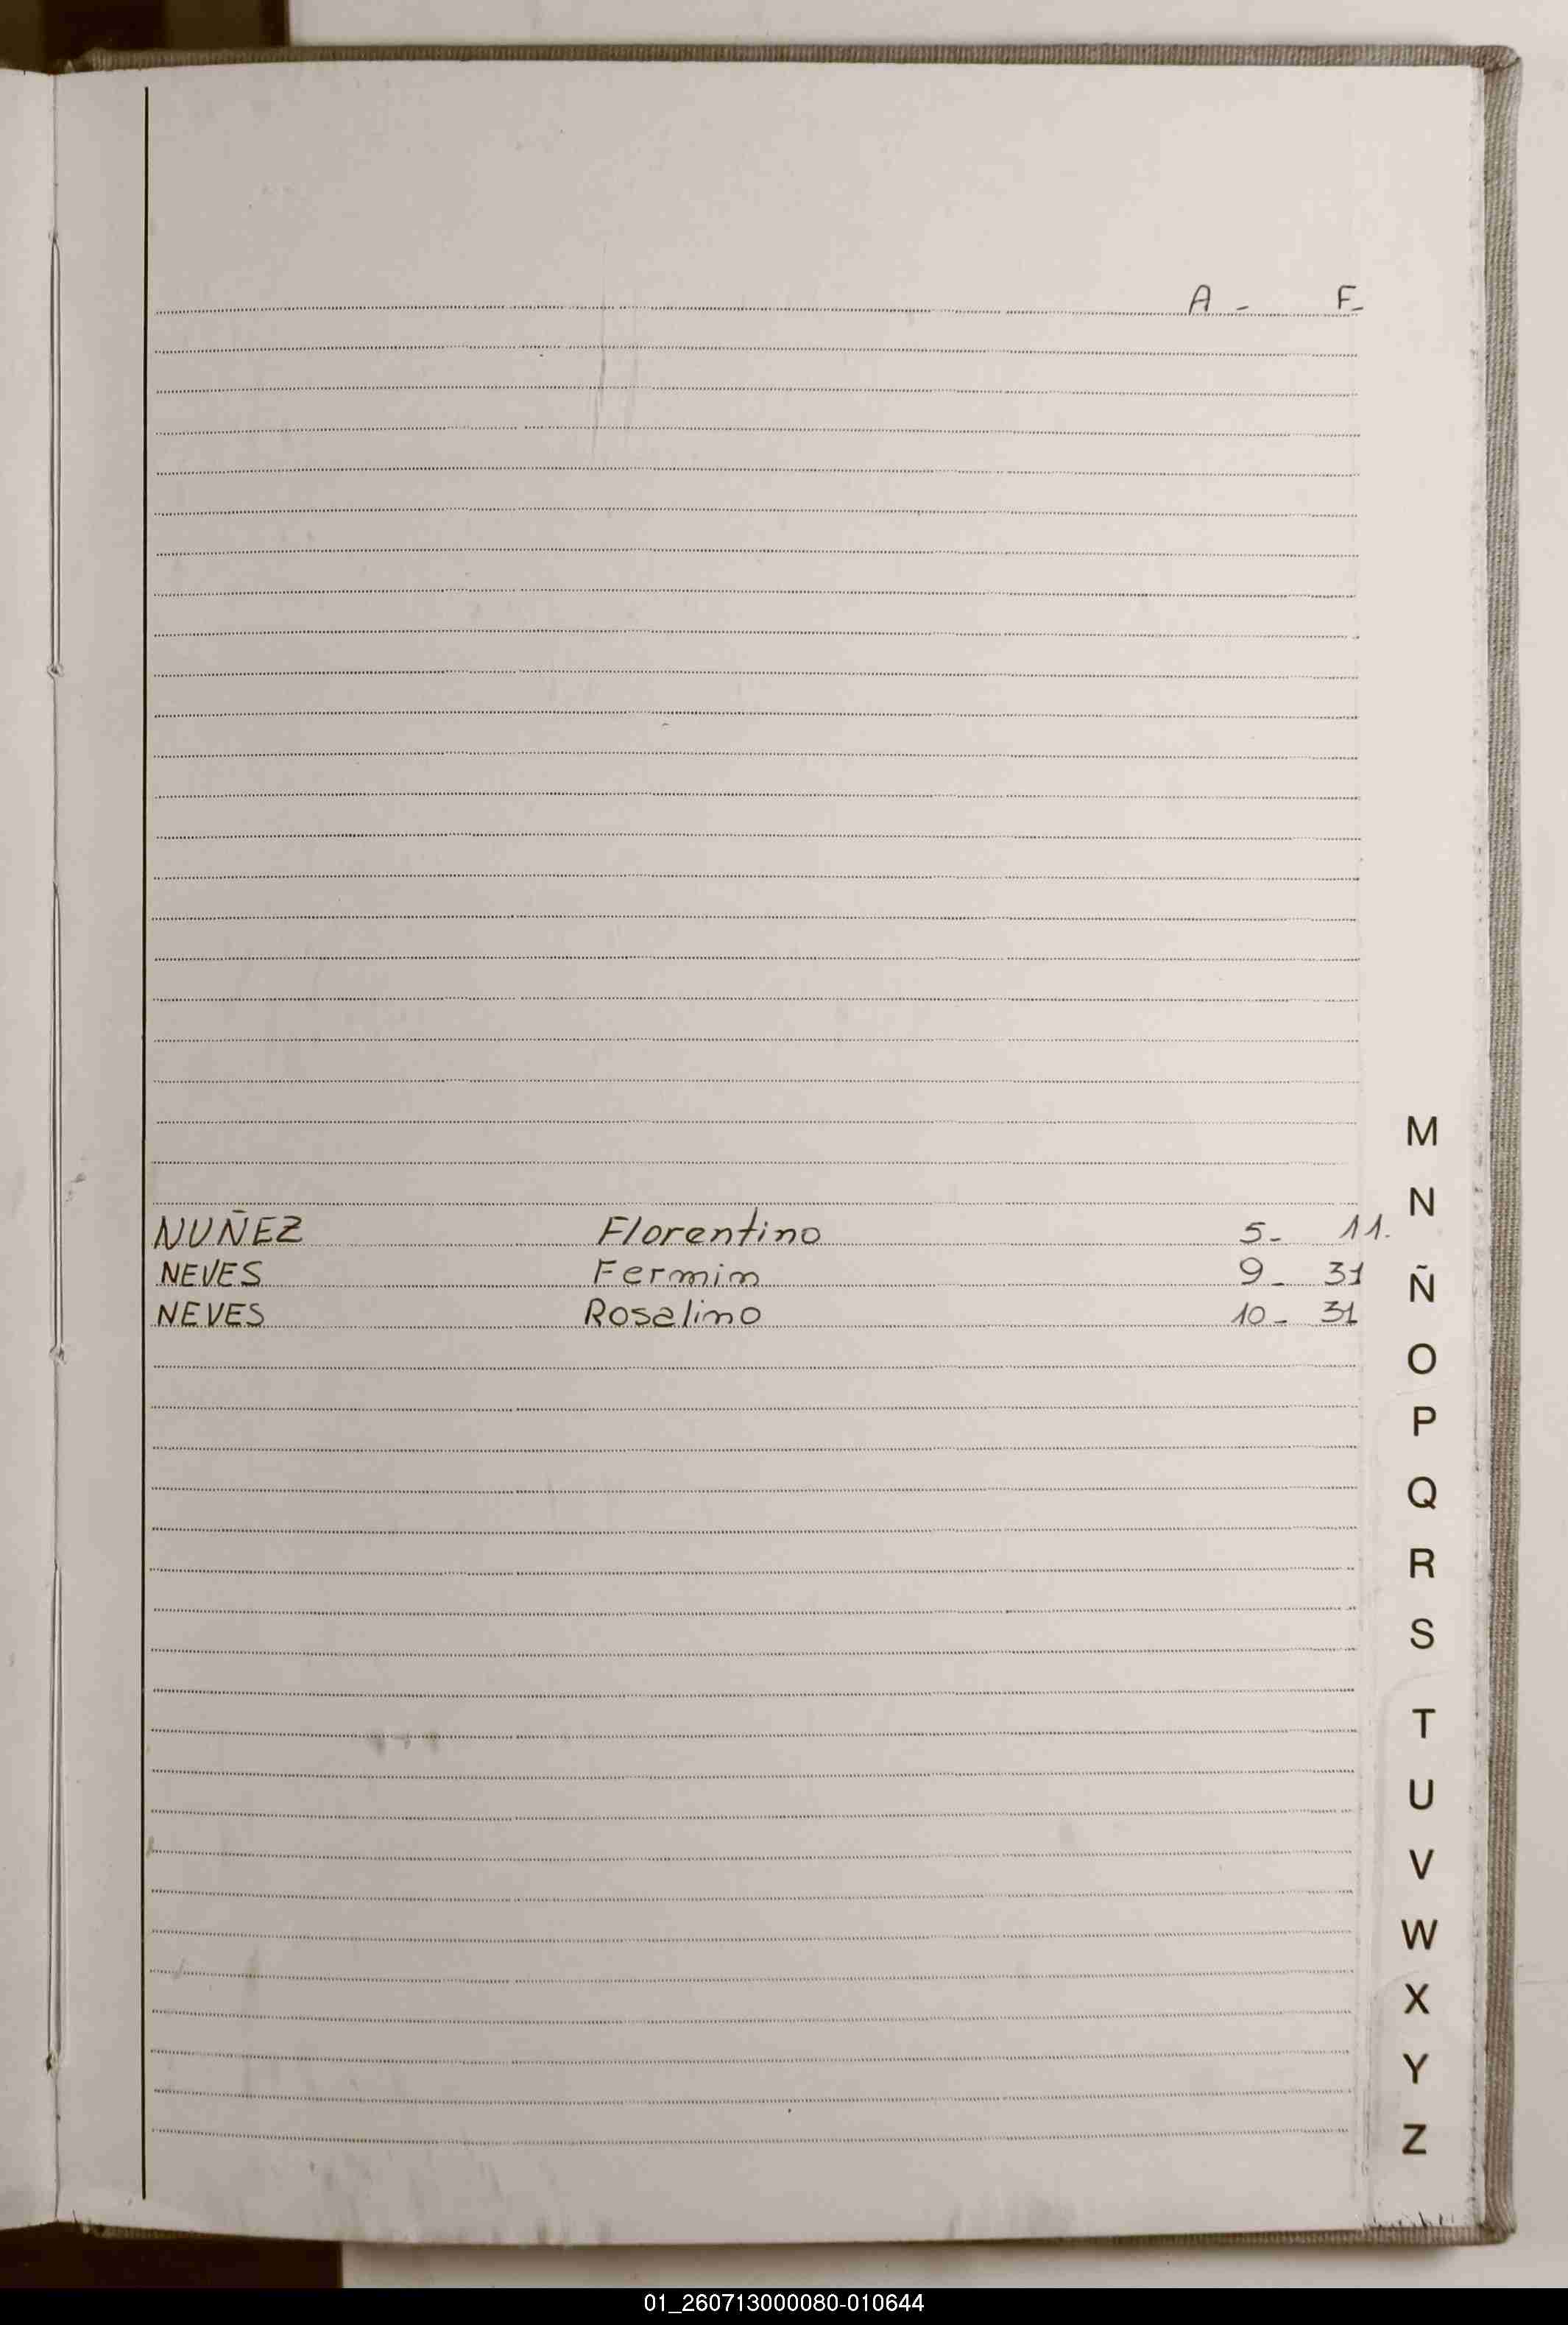 A - F-
M
N
NUÑEZ Florentino 5- 11.
NEVES Fermin 9- 31
Ñ
NEVES Rosalino 10- 31
O
P
Q
R
S
T
U
V
W
X
Y
Z
01_260713000080-010644